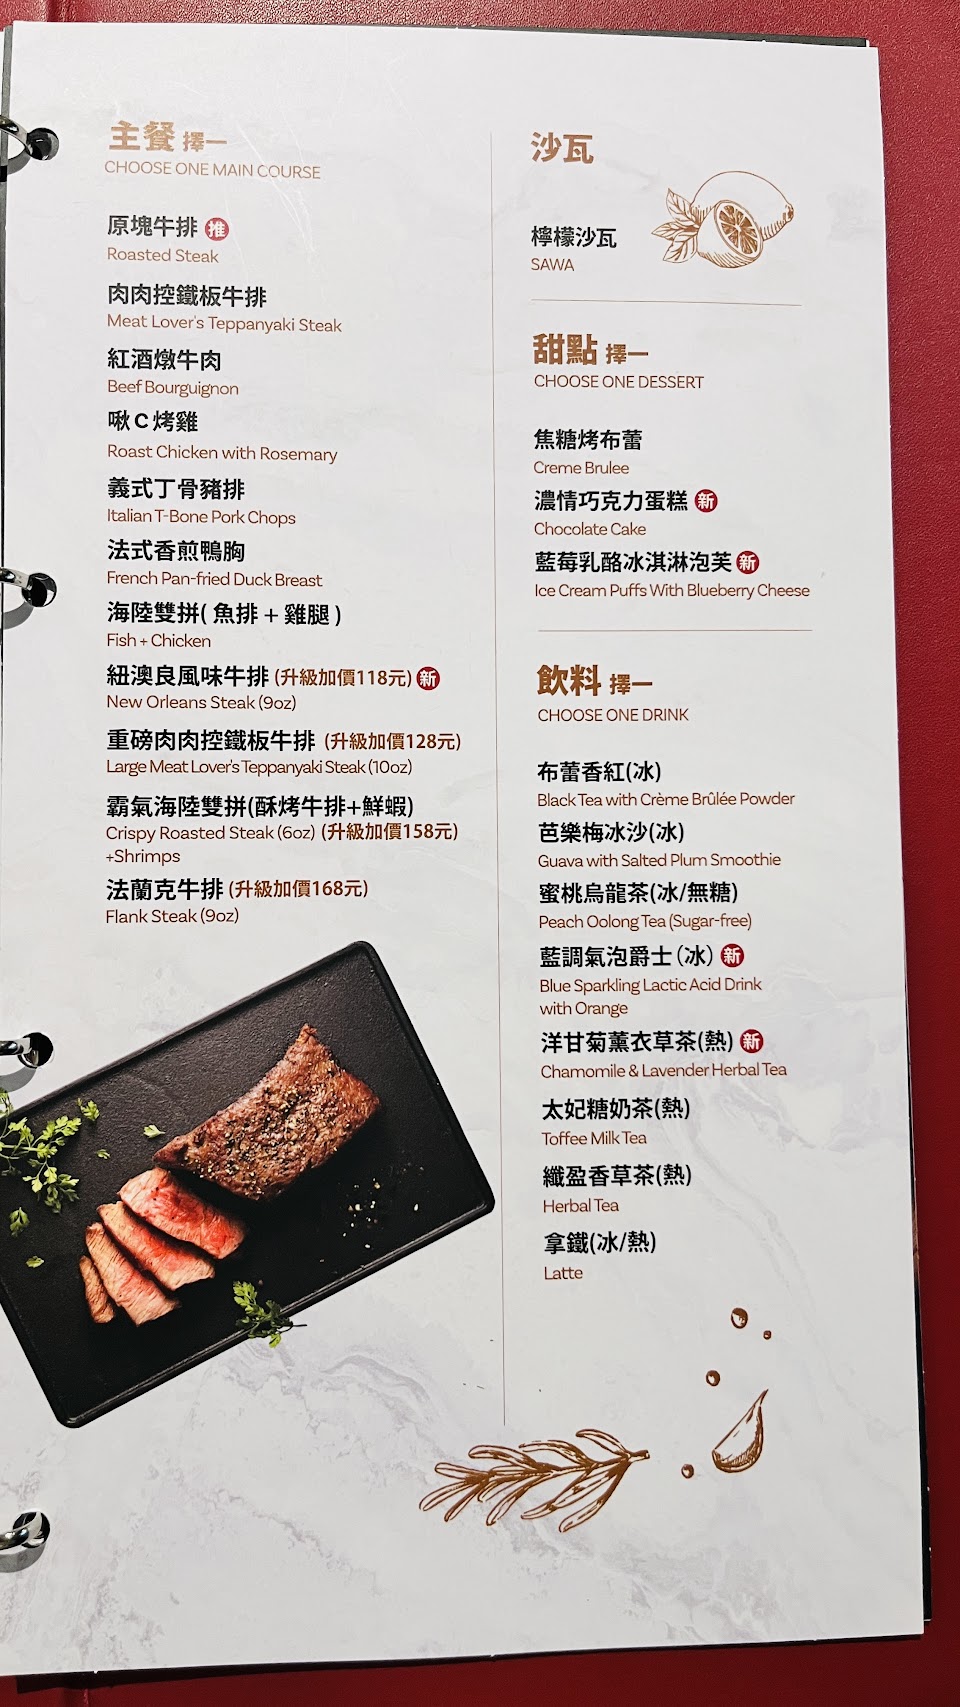 主餐 擇一
CHOOSE ONE MAIN COURSE
原塊牛排 推
Roasted Steak
肉肉控鐵板牛排
Meat Lover's Teppanyaki Steak
紅酒燉牛肉
Beef Bourguignon
啾C烤雞
Roast Chicken with Rosemary
義式丁骨豬排
Italian T-Bone Pork Chops
法式香煎鴨胸
French Pan-fried Duck Breast
海陸雙拼( 魚排 + 雞腿 )
Fish + Chicken
紐澳良風味牛排 (升級加價118元) 新
New Orleans Steak (9oz)
重磅肉肉控鐵板牛排 (升級加價128元)
Large Meat Lover's Teppanyaki Steak (10oz)
霸氣海陸雙拼(酥烤牛排+鮮蝦)
Crispy Roasted Steak (6oz) (升級加價158元)
+Shrimps
法蘭克牛排 (升級加價168元)
Flank Steak (9oz)
沙瓦
檸檬沙瓦
SAWA
甜點 擇一
CHOOSE ONE DESSERT
焦糖烤布蕾
Creme Brulee
濃情巧克力蛋糕 新
Chocolate Cake
藍莓乳酪冰淇淋泡芙 新
Ice Cream Puffs With Blueberry Cheese
飲料 擇一
CHOOSE ONE DRINK
布蕾香紅(冰)
Black Tea with Crème Brûlée Powder
芭樂梅冰沙(冰)
Guava with Salted Plum Smoothie
蜜桃烏龍茶(冰/無糖)
Peach Oolong Tea (Sugar-free)
藍調氣泡爵士(冰) 新
Blue Sparkling Lactic Acid Drink
with Orange
洋甘菊薰衣草茶(熱) 新
Chamomile & Lavender Herbal Tea
太妃糖奶茶(熱)
Toffee Milk Tea
纖盈香草茶(熱)
Herbal Tea
拿鐵(冰/熱)
Latte